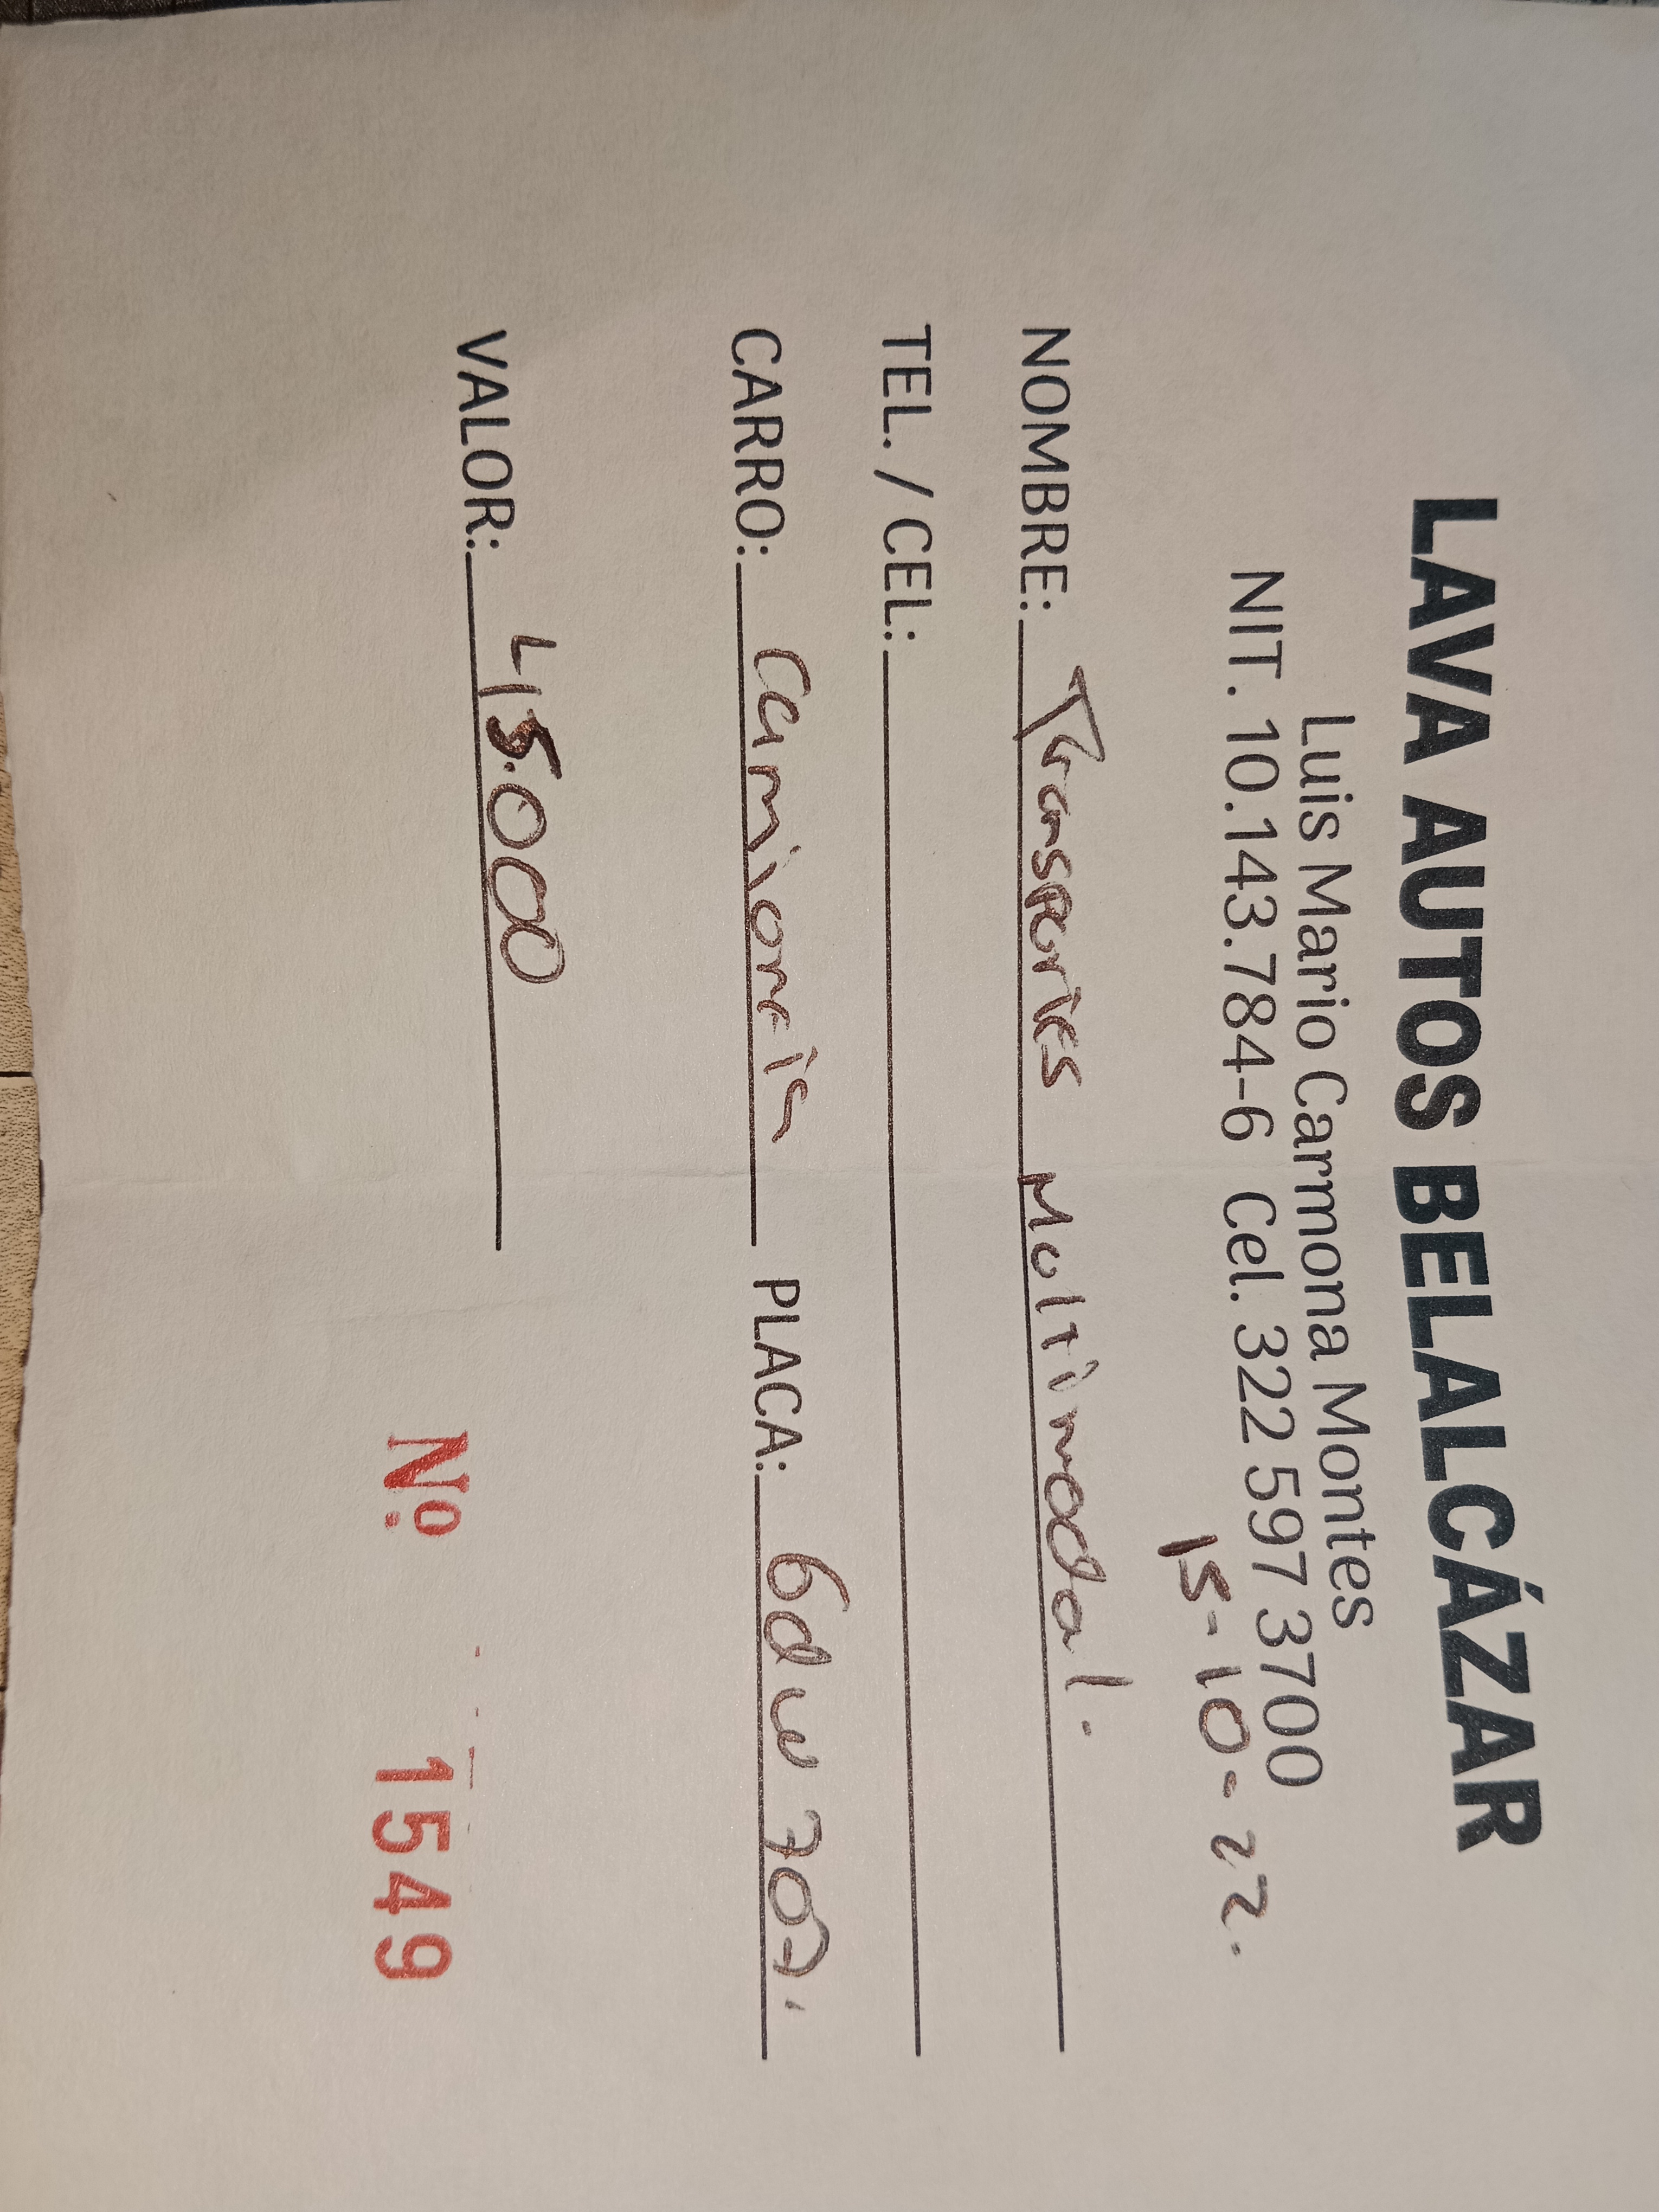 LAVA AUTOS BELALCÁZAR
Luis Mario Carmona Montes
NIT. 10.143.784-6 Cel. 322 597 3700
15-10-22.
NOMBRE: Transportes Multimodal.
TEL. / CEL:
CARRO: Camioneta PLACA:
VALOR: 45.000
Nº 1549